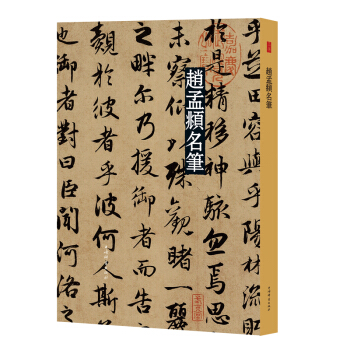 趙孟頫名筆
趙孟頫名筆
乎芝田容與乎陽林流眄
於是精移神駭忽焉思
未察仰以殊觀睹一麗
之畔尔乃援御者而告
覿於彼者乎彼何人斯
也御者對曰臣聞河洛之